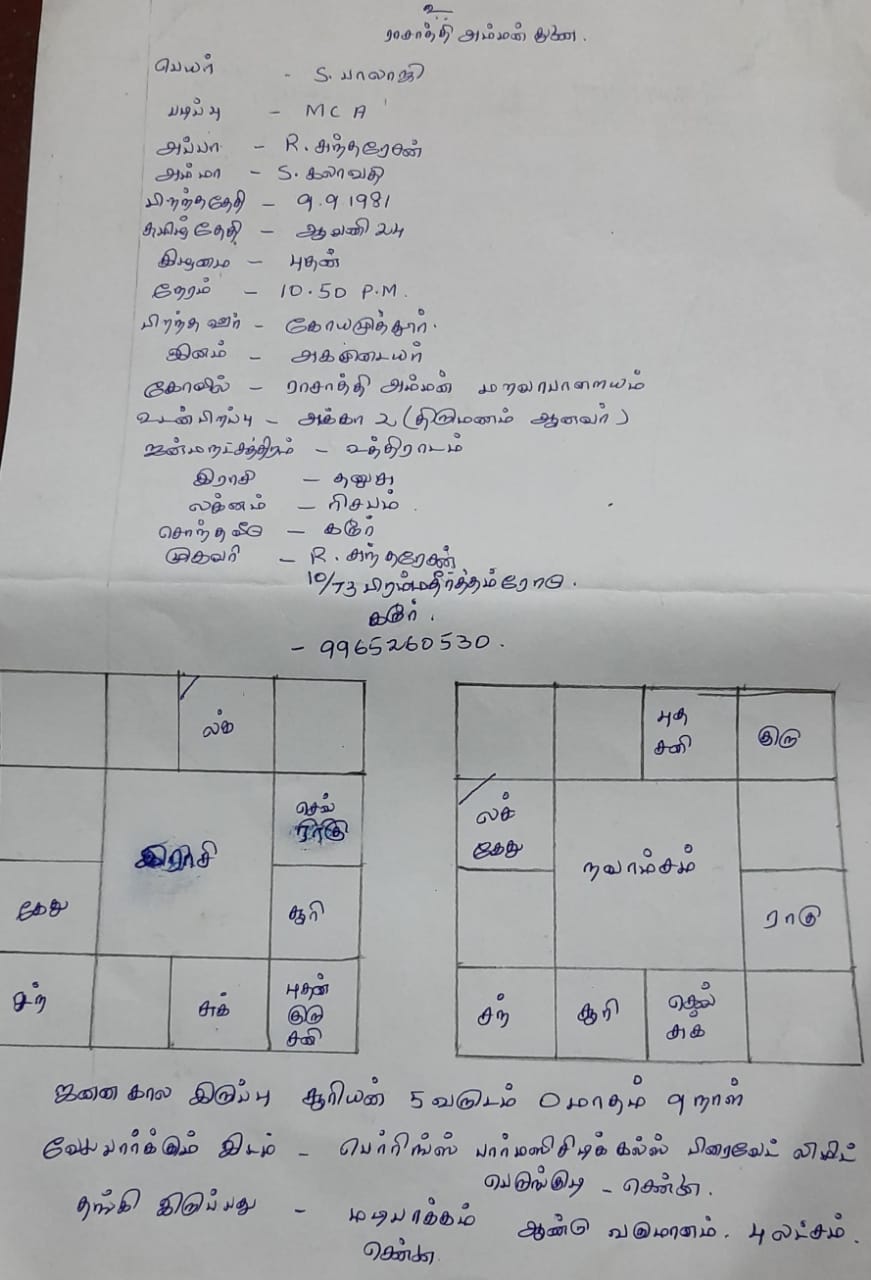 உ
ராசாத்தி அம்மன் துணை.
பெயர் - S. பாலாஜி
படிப்பு - MCA
அப்பா - R. சுந்தரேசன்
அம்மா - S. கலாவதி
பிறந்ததேதி - 9.9.1981
தமிழ் தேதி - ஆவணி 24
கிழமை - புதன்
நேரம் - 10.50 P.M.
பிறந்த ஊர் - கோயமுத்தூர்.
இனம் - அகமுடையர்
கோவில் - ராசாத்தி அம்மன்
உடன்பிறப்பு - அக்கா 2 (திருமணம் ஆனவர்)
ஜன்மநட்சத்திரம் - உத்திராடம்
இராசி - தனுசு
லக்னம் - ரிசபம்.
சொந்தவீடு - கரூர்
முகவரி - R. சுந்தரேசன்
10/73 பிரம்மதீர்த்தம் ரோடு.
கரூர்.
- 9965260530.
லக்
செவ்
ராகு
இராசி
கேது
சூரி
சந்
சுக்
புதன்
குரு
சனி
புத
சனி
குரு
லக்
கேது
நவாம்சம்
ராகு
சந்
சூரி
செவ்
சுக்
ஜனன கால இருப்பு சூரியன் 5 வருடம் 0 மாதம் 9 நாள்
வேலைபார்க்கும் இடம் - பெர்ரிங்ஸ் பார்மஸிடிக்கல்ஸ் பிரைவேட் லிமிட்
பெருங்குடி - சென்னை.
தங்கி இருப்பது - மடிபாக்கம் ஆண்டு வருமானம். 4 லட்சம்.
சென்னை